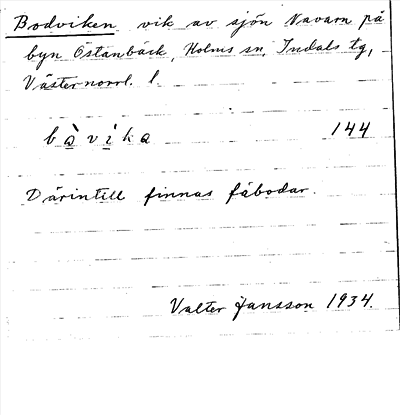 Bodviken vik av sjön Navarn på
byn Östanbäck, Holms sn, Indals tg,
Västernorrl. l.
bàvika 144
Därintill finnas fäbodar.
Valter Jansson 1934.